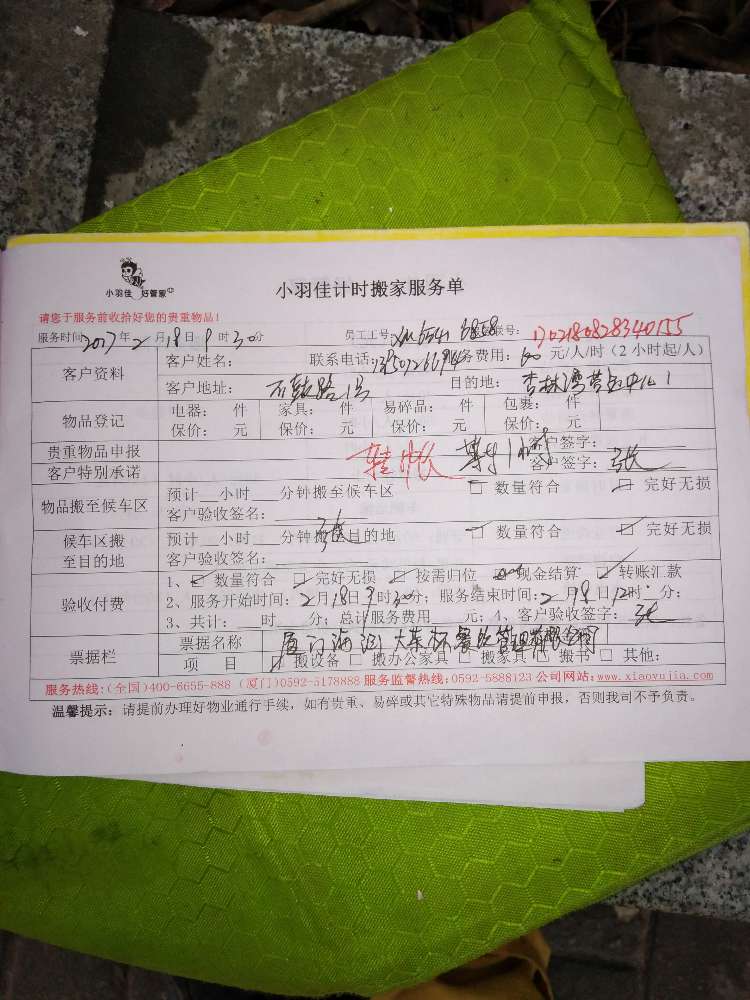 小羽佳 好管家
小羽佳计时搬家服务单
请您于服务前收拾好您的贵重物品！
服务时间2017年2月18日9时30分 员工工号: 联号: 1702180828340155
客户资料 客户姓名: 联系电话: 务费用: 60 元/人/时（2 小时起/人）
客户地址: 目的地: 杏林湾营运中心1
物品登记 电器: 件 家具: 件 易碎品: 件 包裹: 件
保价: 元 保价: 元 保价: 元 保价: 元
贵重物品申报 客户签字:
客户特别承诺 转帐 客户签字: 张
物品搬至候车区 预计 小时 分钟搬至候车区 □ 数量符合 □ 完好无损
客户验收签名:
候车区搬至目的地 预计 小时 分钟搬至目的地 □ 数量符合 □ 完好无损
客户验收签名: 张
验收付费 1、□ 数量符合 □ 完好无损 □ 按需归位 现金结算 □ 转账汇款
2、服务开始时间: 2月18日9时30分; 服务结束时间: 2月18日12时 分;
3、共计: 时 分; 总计服务费用 元; 4、客户验收签字: 张
票据栏 票据名称 厦门海沧大茶杯餐饮管理有限公司
项 目 □ 搬设备 □ 搬办公家具 □ 搬家具 □ 搬书 □ 其他:
服务热线:(全国)400-6655-888 (厦门)0592-5178888 服务监督热线:0592-5888123 公司网站:www.xiaoyujia.com
温馨提示: 请提前办理好物业通行手续，如有贵重、易碎或其它特殊物品请提前申报，否则我司不予负责。